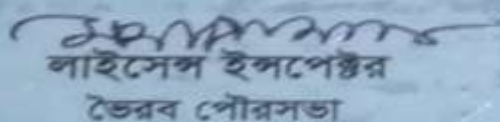 লাইসেন্স ইন্সপেক্টর
ভৈরব পৌরসভা